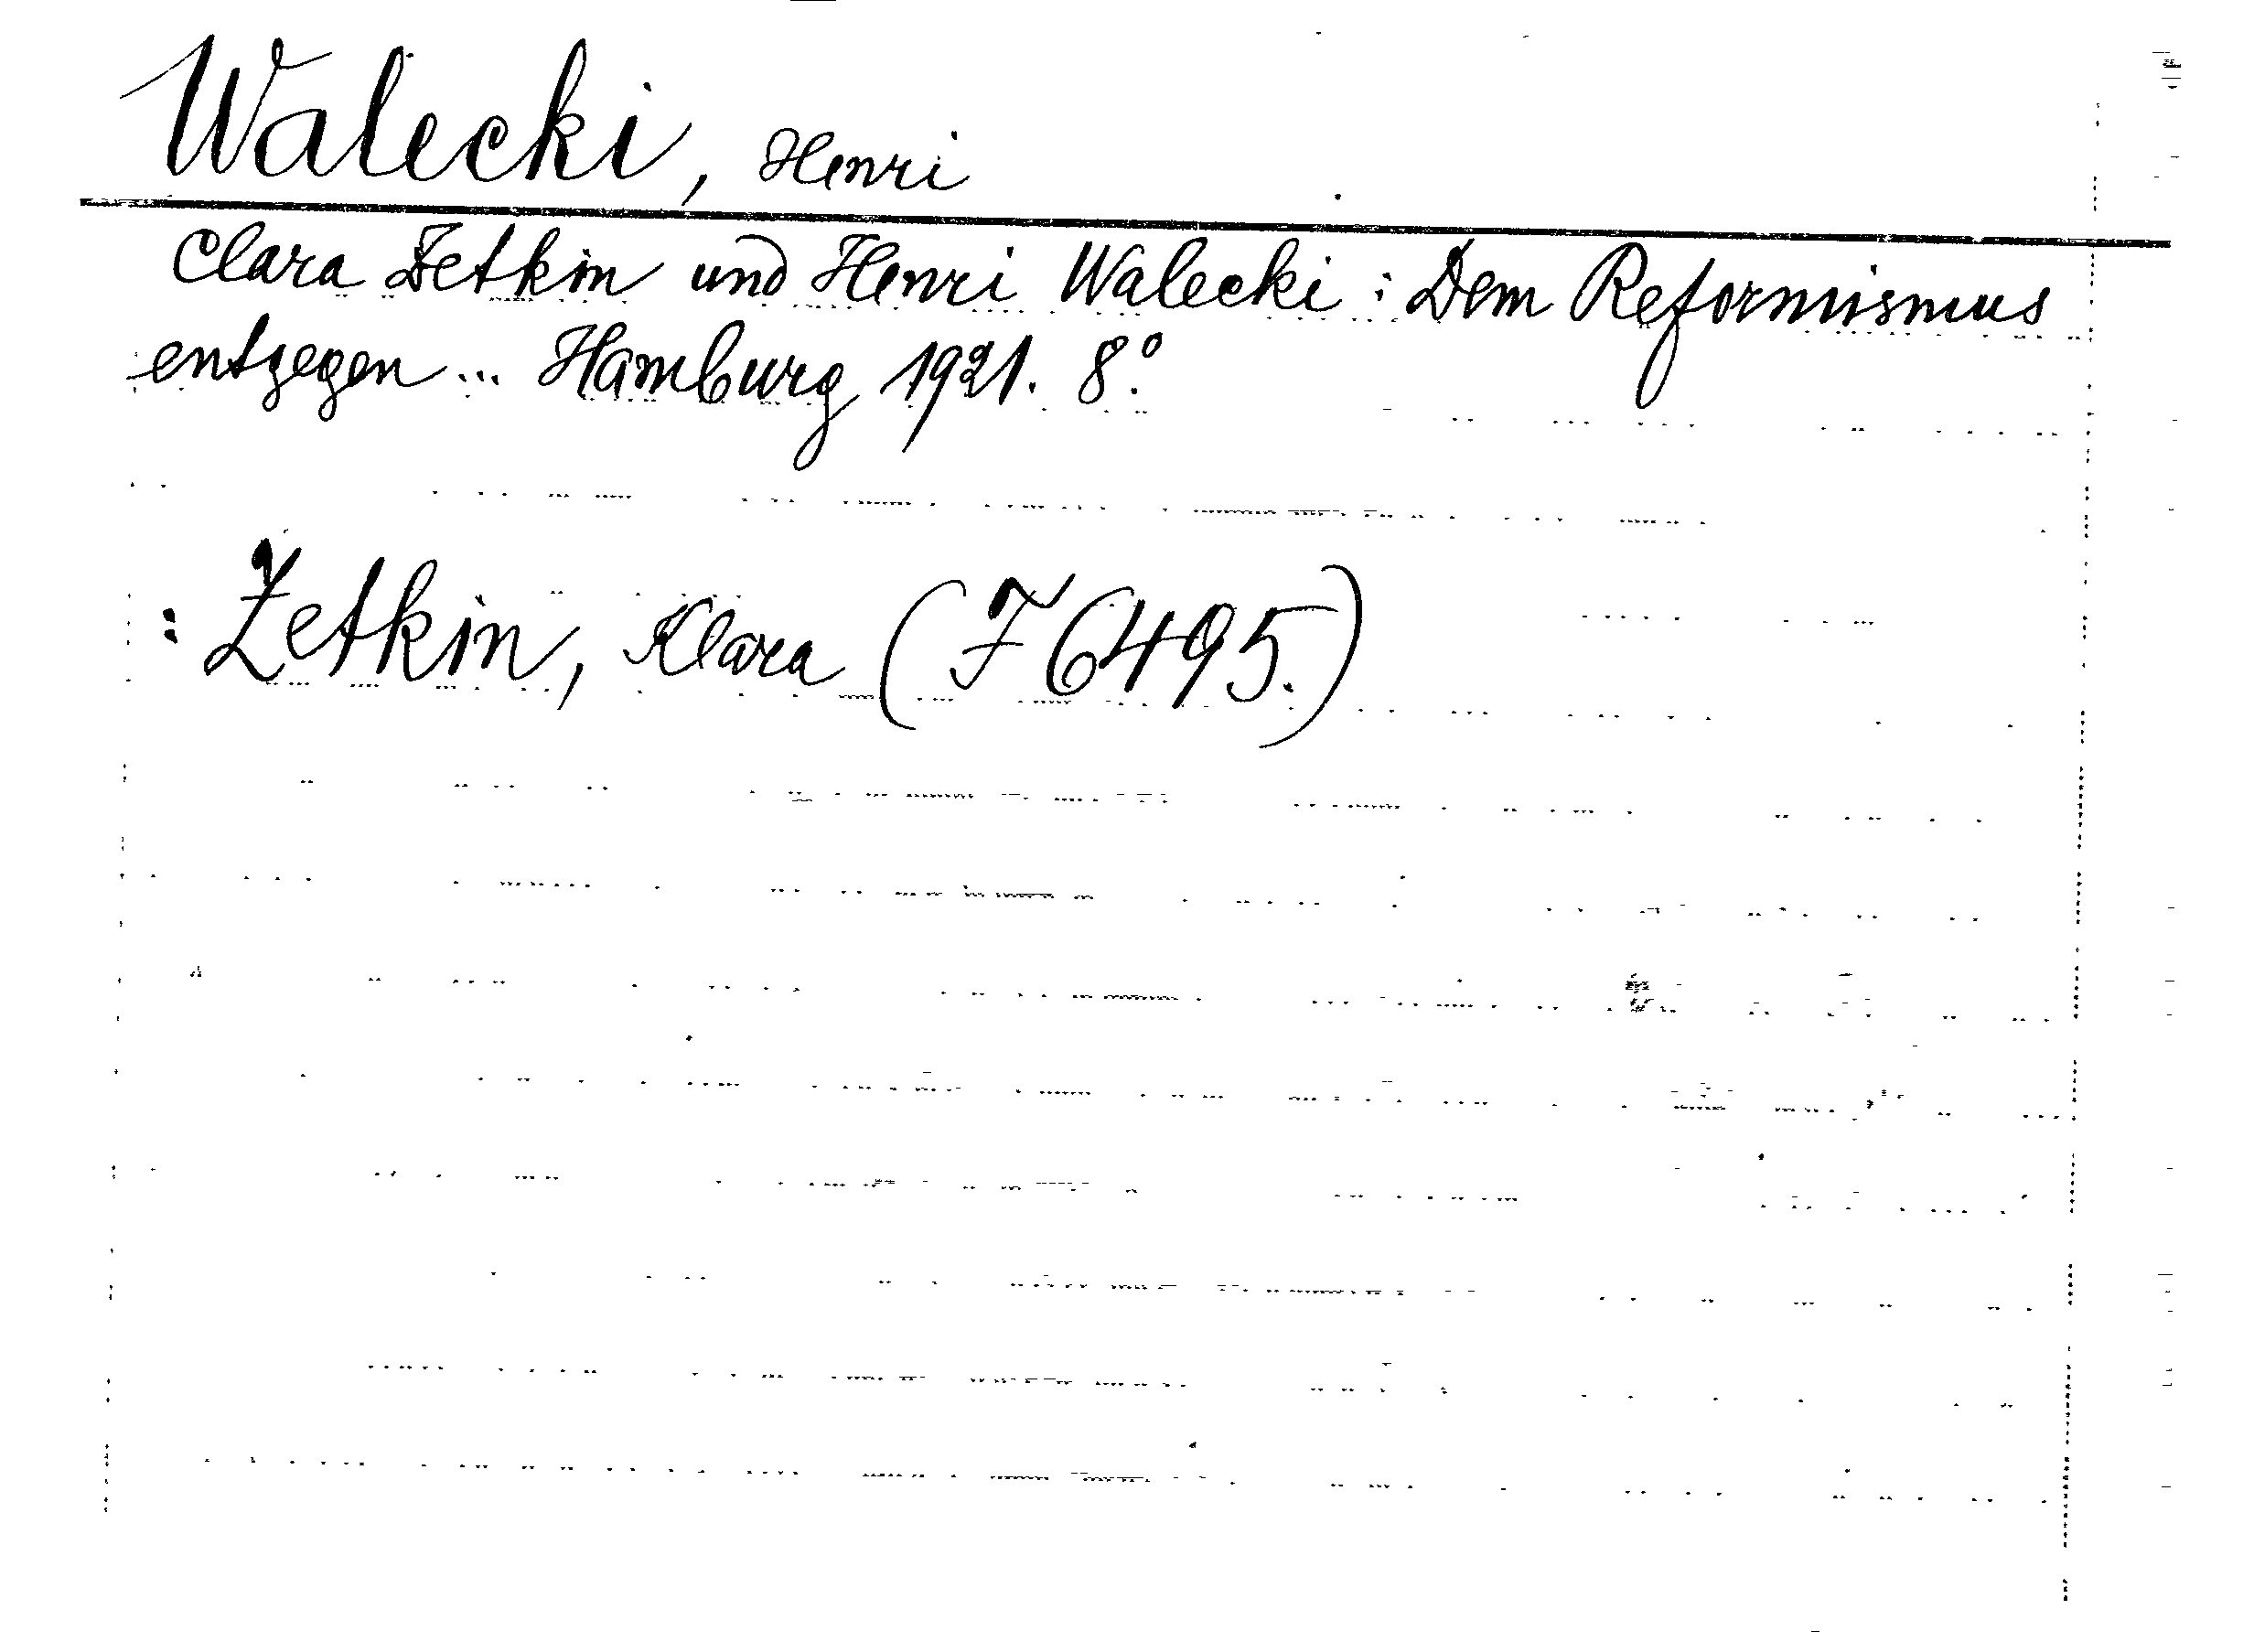 Walecki, Henri
Clara Zetkin und Henri Walecki: Dem Reformismus
entgegen... Hamburg 1921. 8°.
: Zetkin, Klara (F 6495.)